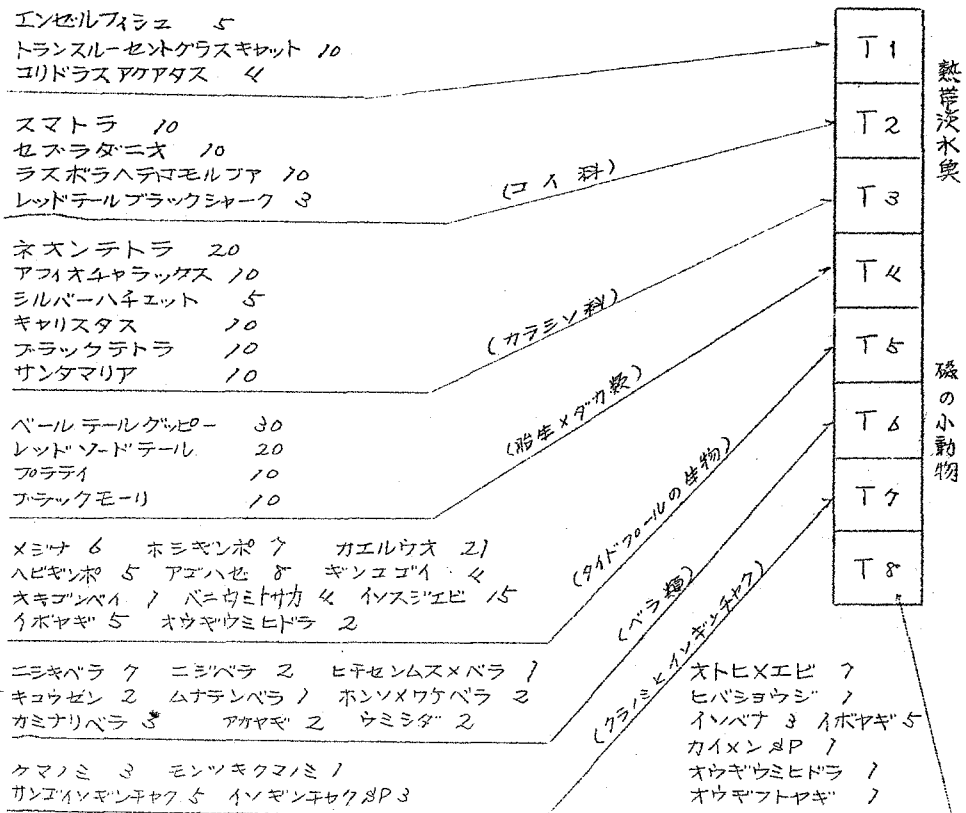 エンゼルフィシュ 5
トランスルーセントグラスキャット 10
コリドラスアクアタス 4
スマトラ 10
ゼブラダニオ 10
ラスボラヘテロモルファ 10
レッドテールブラックシャーク 3
(コイ科)
ネオンテトラ 20
アフィオチャラックス 10
シルバーハチェット 5
キャリスタス 10
ブラックテトラ 10
サンタマリア 10
(カラシン科)
ベールテールグッピー 30
レッドソードテール 20
プラティ 10
ブラックモーリ 10
(胎生メダカ類)
メジナ 6 ホシギンポ 7 カエルウオ 21
ヘビギンポ 5 アゴハゼ 8 ギンユゴイ 4
オキゴンベイ 1 ベニウミトサカ 4 イソスジエビ 15
イボヤギ 5 オウギウミヒドラ 2
(タイドプールの生物)
ニシキベラ 7 ニジベラ 2 ヒチセンムスメベラ 1
キュウセン 2 ムナテンベラ 1 ホンソメワケベラ 2
カミナリベラ 3 アカヤギ 2 ウミシダ 2
(ベラ類)
クマノミ 3 モンツキクマノミ 1
サンゴイソギンチャク 5 イソギンチャクSP 3
(クマノミとイソギンチャク)
T1
T2
T3
T4
T5
T6
T7
T8
熱帯淡水魚
磯の小動物
オトヒメエビ 7
ヒバショウジ 1
イソバナ 3 イボヤギ 5
カイメンSP 1
オウギウミヒドラ 1
オウギフトヤギ 1